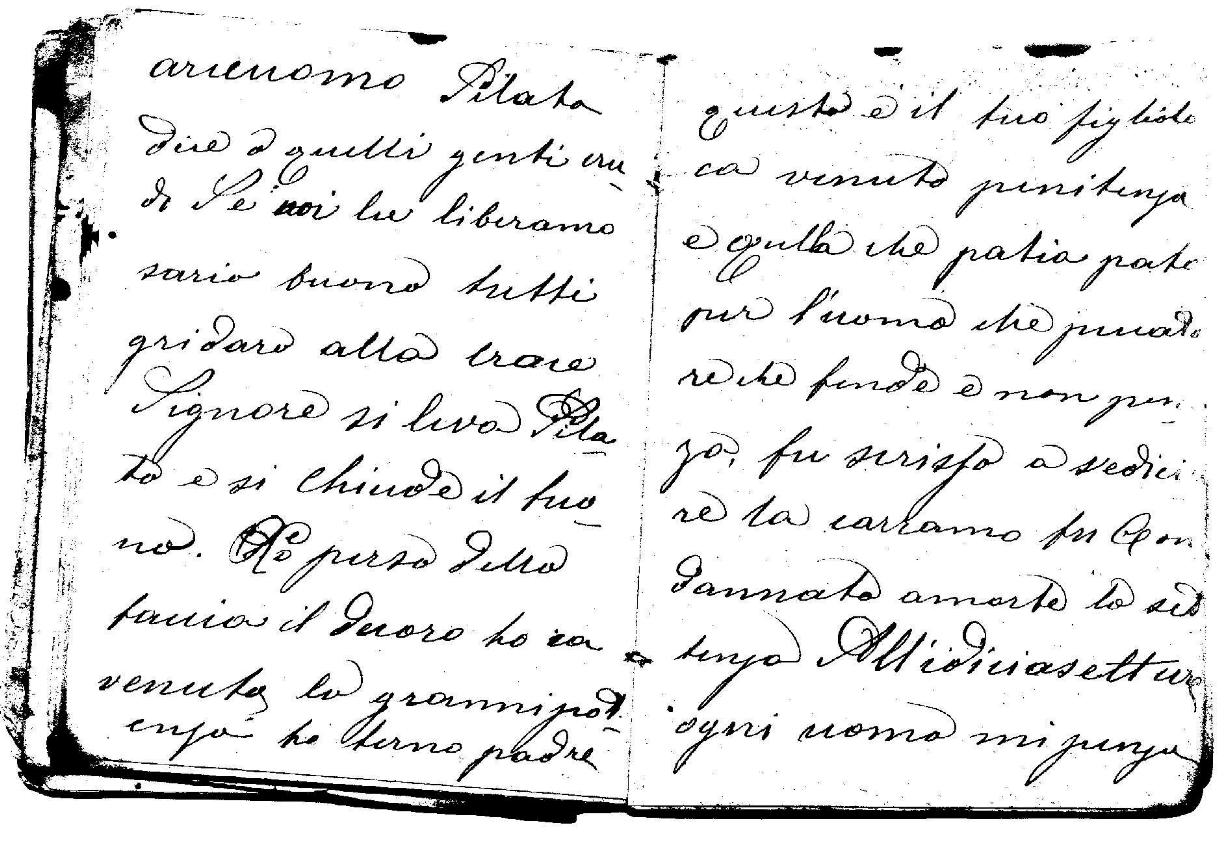 aricuomo Pilato
dice a quelli genti cru-
di Se noi lu liberamo
sario buono tutti
gridaro alla croce
Signore si leva Pila-
to e si Chiude il tuo-
no. perso della
faccia il ho ca
venuto la grannipot-
enza ho terno padre
questo e il tuo figliolo
ca venuto penitenza
e quello che patio pate
per l'uomo che peccato
re che fende e non pen
za, fu scrisso a sedici
re la carramo fu Con
dannato amorte la set
tenza Allidiciasettura
ogni uomo mi penza